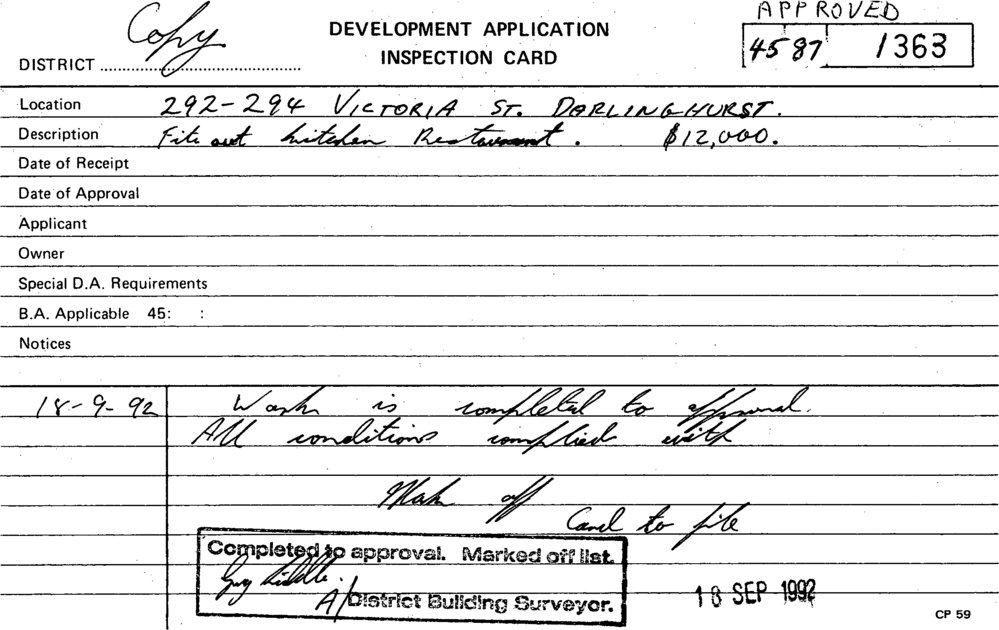 Copy
APPROVED
DEVELOPMENT APPLICATION
INSPECTION CARD
45 87 1363
DISTRICT
Location 292-294 VICTORIA ST. DARLINGHURST.
Description Fit out kitchen Restaurant. $12,000.
Date of Receipt
Date of Approval
Applicant
Owner
Special D.A. Requirements
B.A. Applicable 45: :
Notices
18-9-92 Work is completed to approval.
All conditions complied with
Mark off
Card to file
Completed to approval. Marked off list.
A/District Building Surveyor.
18 SEP 1992
CP 59